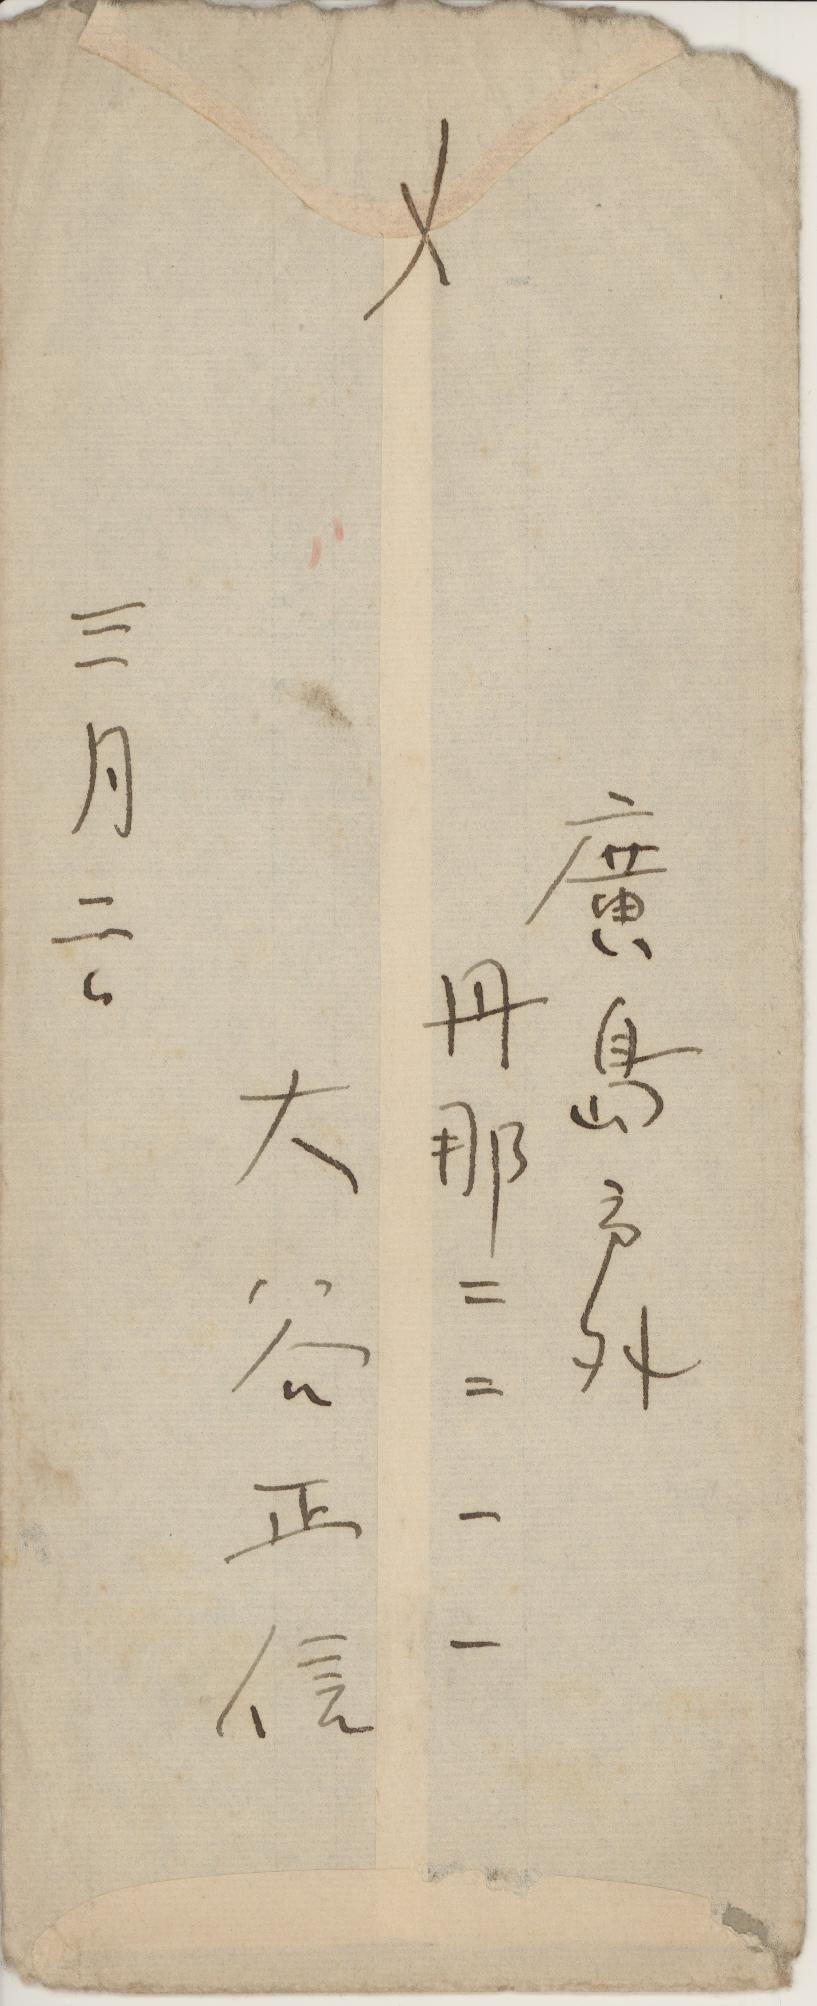 〆
廣島市外
丹那二二一一
大谷正信
三月二